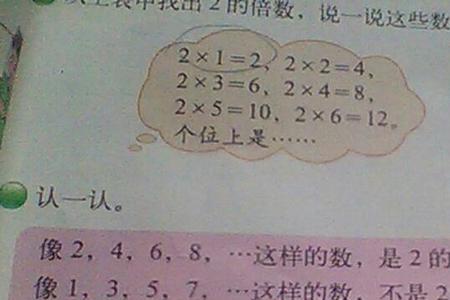 以上表中找出 2 的倍数，说一说这些数
2×1=2，2×2=4，
2×3=6，2×4=8，
2×5=10，2×6=12。
个位上是……
认一认。
像 2，4，6，8，…这样的数，是 2 的
像 1，3，5，7，…这样的数，不是 2